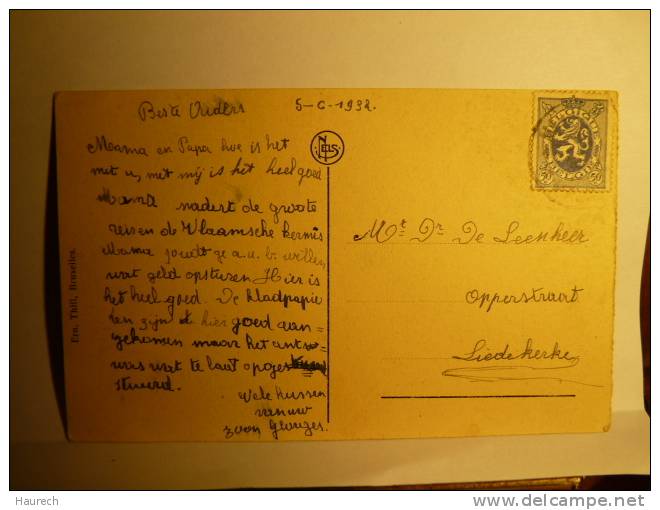 Beste Ouders 5-6-1932.
Mama en Papa hoe is het
met u, met mij is het heel goed
Mama nadert de groote
reis en de Vlaamsche kermis
Mama zoudt ge a.u.b. willen
wat geld opsturen Hier is
het heel goed. De kladpapie
ren zijn hier goed aan=
gekomen maar het
was wat te laat opges
tuurd.
Vele kussen
van uw
zoon Georges.
NELS
Ern. Thill, Bruxelles.
BELGIQUE
BELGIE
50 50
Mr. Dr. De Leenheer
Opperstraat
Liedekerke
Haurech
www.delcampe.net